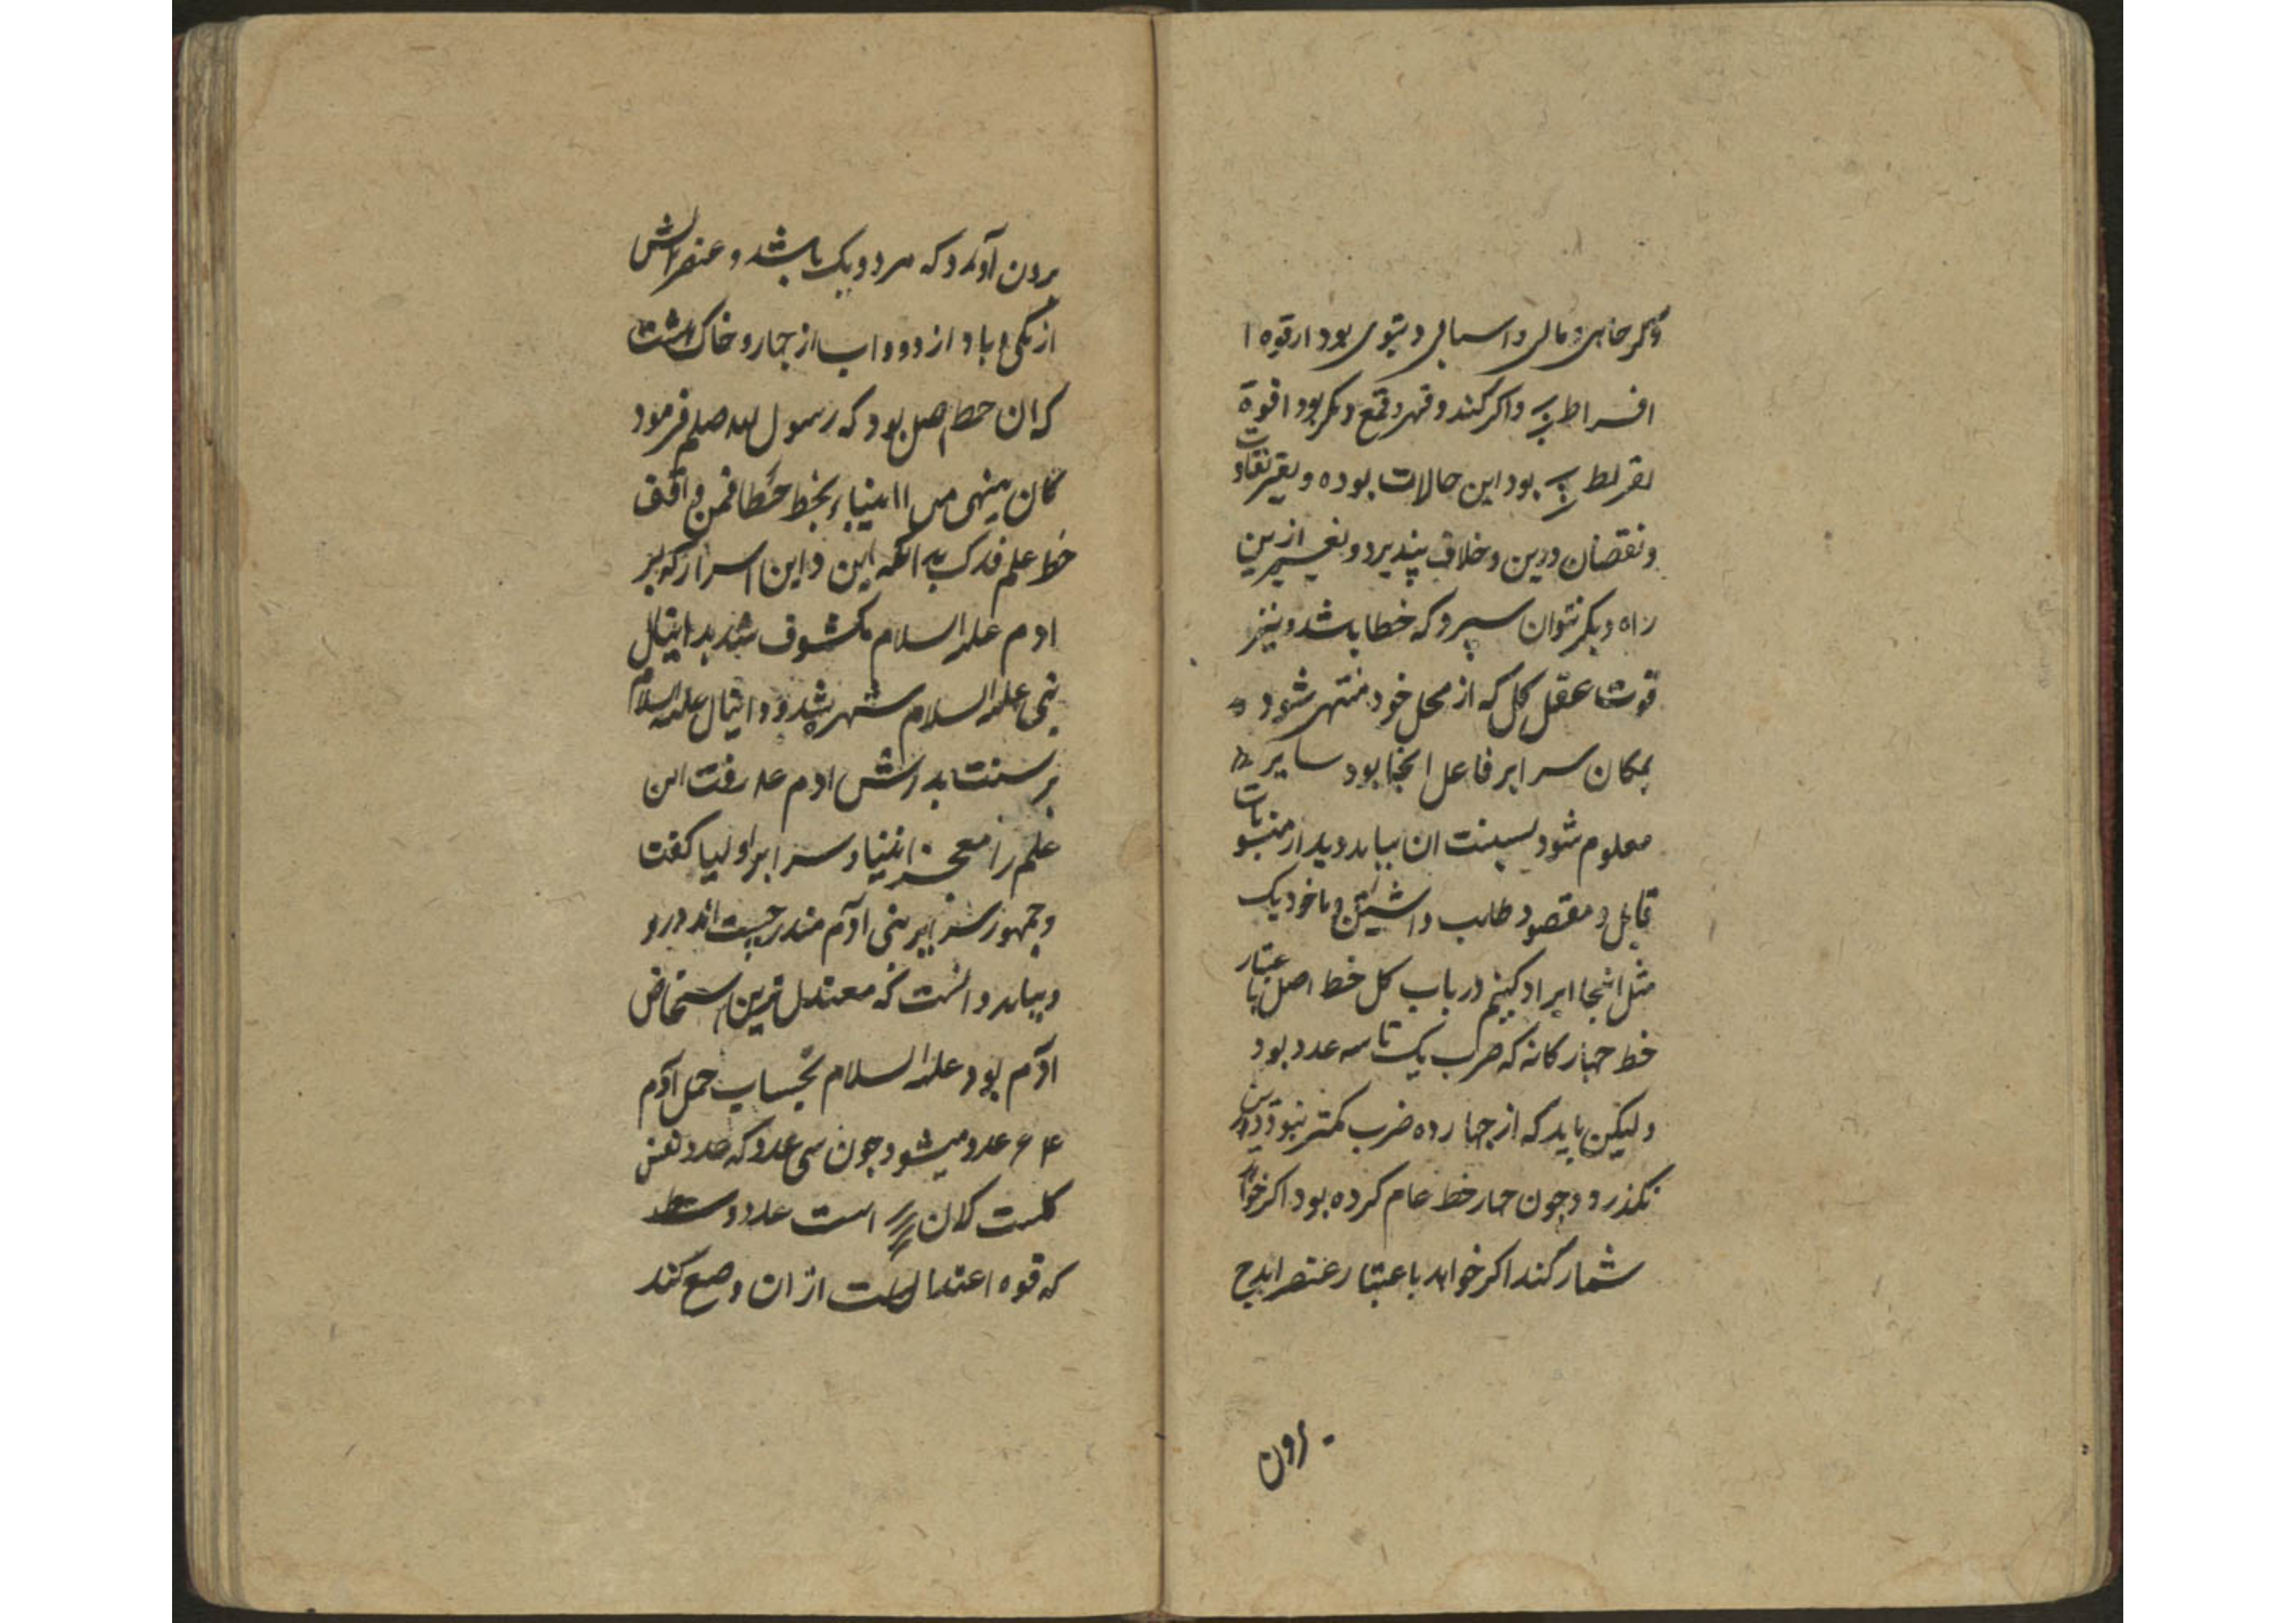 وکر جاهی و مالی و اسبابی دنیوی بود از قوه ا
افراط بر واکر کند و قهر و قمع دیکر بود ا قوة
تفریط بر بود این حالات بوده و بغیر تفاوت
و نقصان درین و خلاف پذیرد و تغییر ازین
راه دیکر نتوان سپرد که خطا باشد و نیز
قوت عقل کل که از محل خود منتهی شود
بمکان سرایر فاعل انجا بود سایر
معلوم شود نسبت ان بباید دید از منسوبات
قابل و مقصود طالب داشتن و با خود یک
مثل انجا ایراد کنیم در باب کل خط اصل باعتبار
خط جهارکانه که ضرب یک تا سه عدد بود
ولیکن باید که از جهارده ضرب کمتر نبود و ازین
نکذرد و جون جهار خط عام کرده بود اکر خواهد
شمار کند اکر خواهد باعتبار عنصر ابدح
برون
برون آورد که مردویک باشد و عنصر اتش
از یکی و باد از دو و اب از جهار و خاک از هشت
که ان خط اصل بود که رسول الله صلم فرمود
کان نبی من الانبیاء یخط خطا فمن وافق
خط علم فدک به اتکه این و این اسرار که بر
ادم علیه السلام مکشوف شد بدانیال
نبی علیه السلام مشهر شد و دانیال علیه السلام
بر سنت بدرش ادم عه رفت این
علم را معجز انبیا و سرایر اولیا کفت
و جمهور سرایر بنی آدم مندرجست اندرو
و بباید دانست که معتدل ترین اشخاص
آدم بود علیه السلام بحساب جمل آدم
۴۶ عدد میشود جون سی عدد که عدد نفس
کلست کلان است عدد وسط
که قوه اعتدالست از ان وضع کند